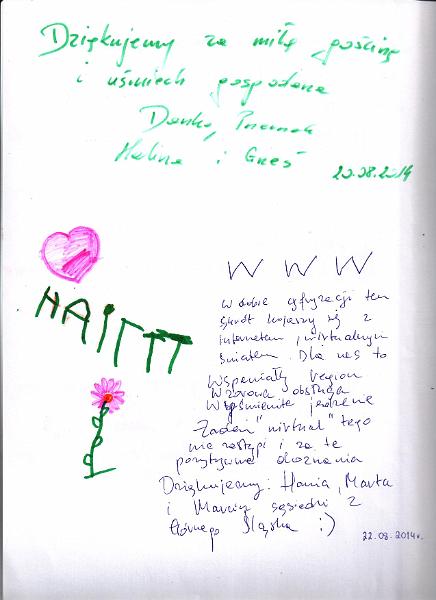 Dziękujemy za miłą gościnę
i uśmiech gospodarza
Danka,
Halina i Grześ
20.08.2014
W W W
W dobie cyfryzacji ten
skrót kojarzy się z
internetem, wirtualnym
światem. Dla nas to
Wspaniały region
Wzorowa obsługa
Wyśmienite jedzenie
Żaden "wirtual" tego
nie zastąpi i za te
pozytywne doznania
Dziękujemy: Hania, Marta
i Marcin sąsiedzi z
Górnego Śląska :)
22.08.2014r.